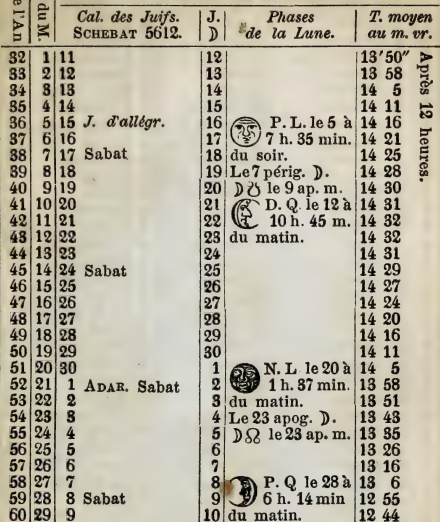 e l'An | du M. | Cal. des Juifs. SCHEBAT 5612. | J. ☽ | Phases de la Lune. | T. moyen au m. vr.
32 | 1 | 11 | 12 | | 13'50"
33 | 2 | 12 | 13 | | 13 58
34 | 3 | 13 | 14 | | 14 5
35 | 4 | 14 | 15 | | 14 11
36 | 5 | 15 J. d'allégr. | 16 | P. L. le 5 à | 14 16
37 | 6 | 16 | 17 | 7 h. 35 min. | 14 21
38 | 7 | 17 Sabat | 18 | du soir. | 14 25
39 | 8 | 18 | 19 | Le 7 périg. ☽. | 14 28
40 | 9 | 19 | 20 | ☽☋ le 9 ap. m. | 14 30
41 | 10 | 20 | 21 | D. Q. le 12 à | 14 31
42 | 11 | 21 | 22 | 10 h. 45 m. | 14 32
43 | 12 | 22 | 23 | du matin. | 14 32
44 | 13 | 23 | 24 | | 14 31
45 | 14 | 24 Sabat | 25 | | 14 29
46 | 15 | 25 | 26 | | 14 27
47 | 16 | 26 | 27 | | 14 24
48 | 17 | 27 | 28 | | 14 20
49 | 18 | 28 | 29 | | 14 16
50 | 19 | 29 | 30 | | 14 11
51 | 20 | 30 | 1 | N. L. le 20 à | 14 5
52 | 21 | 1 ADAR. Sabat | 2 | 1 h. 37 min. | 13 58
53 | 22 | 2 | 3 | du matin. | 13 51
54 | 23 | 3 | 4 | Le 23 apog. ☽. | 13 43
55 | 24 | 4 | 5 | ☽☊ le 23 ap. m. | 13 35
56 | 25 | 5 | 6 | | 13 26
57 | 26 | 6 | 7 | | 13 16
58 | 27 | 7 | 8 | P. Q le 28 à | 13 6
59 | 28 | 8 Sabat | 9 | 6 h. 14 min | 12 55
60 | 29 | 9 | 10 | du matin. | 12 44
Après 12 heures.